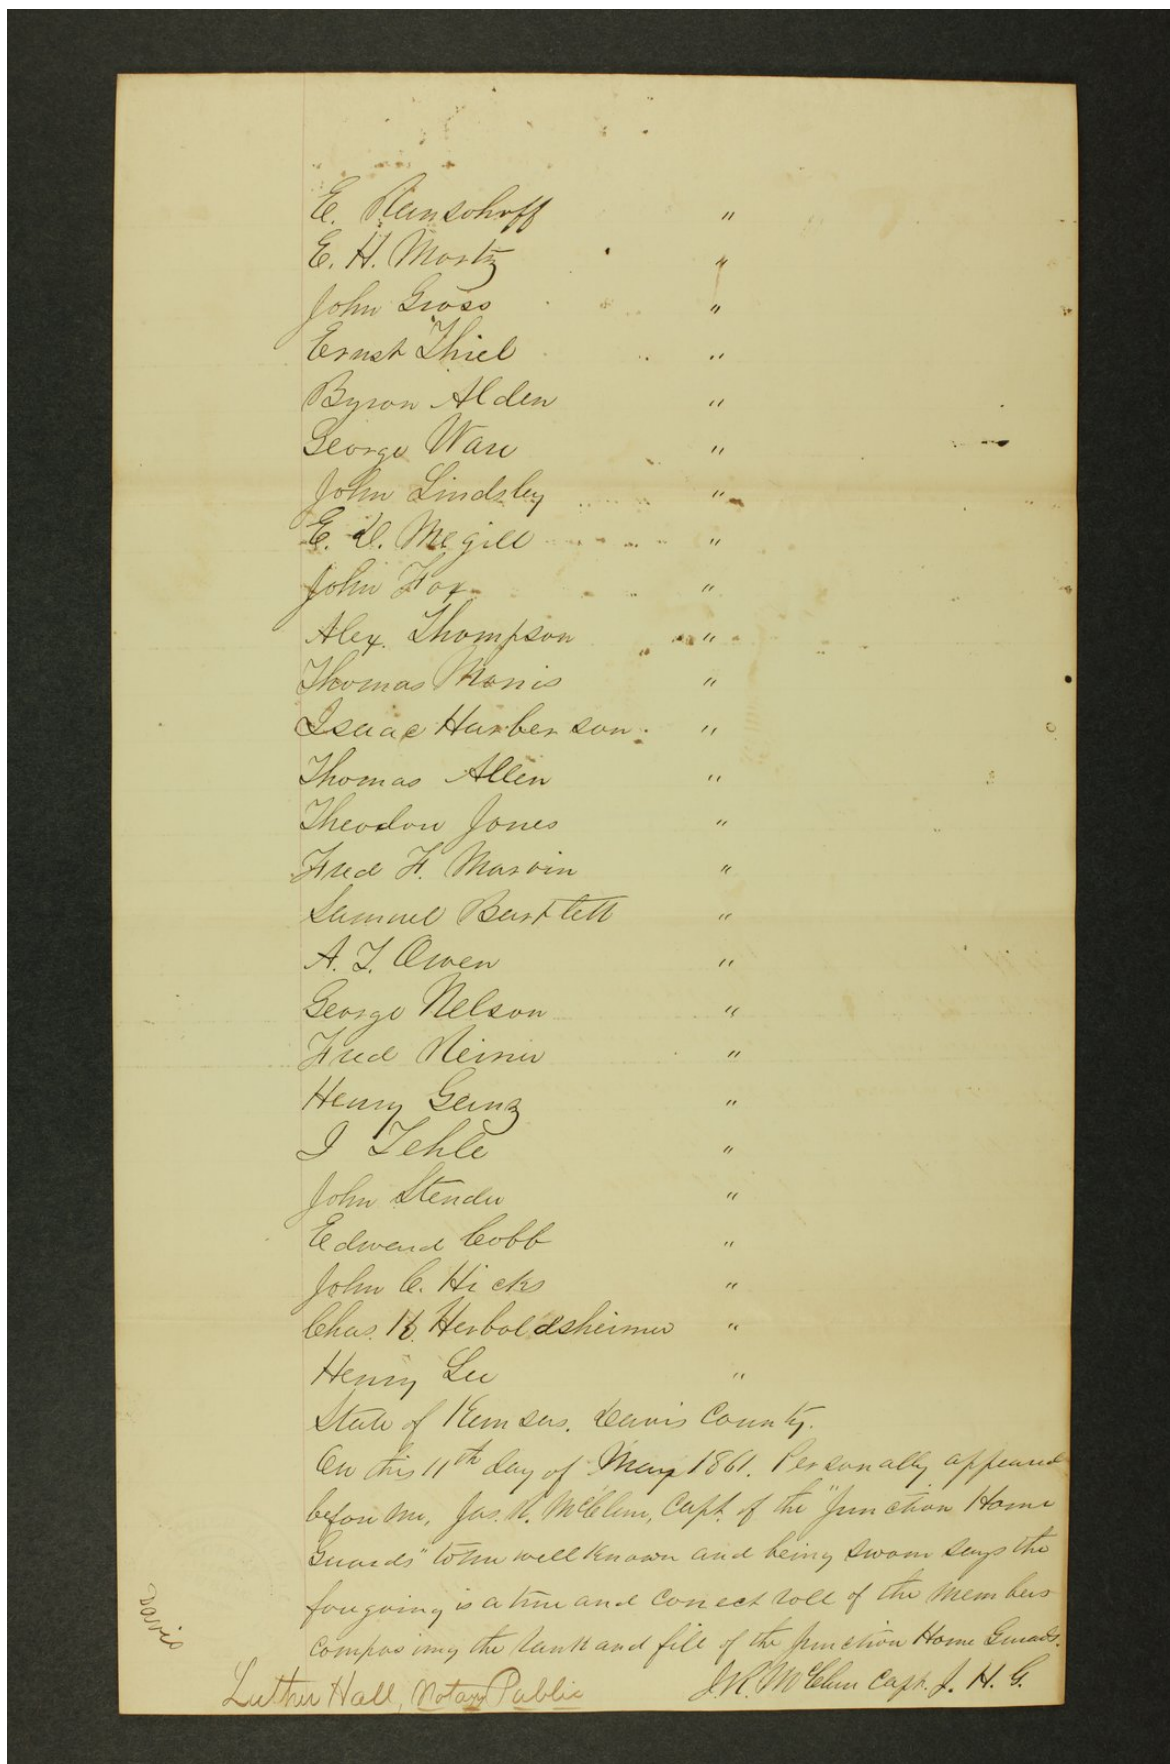 E. Ransohoff "
E. H. Mortz "
John Gross "
Ernst Thiel "
Byron Alden "
George Ware "
John Lindsley "
E. D. Megill "
John Fox "
Alex. Thompson "
Thomas Morris "
Isaac Harberson. "
Thomas Allen "
Theodore Jones "
Fred F. Marvin "
Samuel Bartlett "
A. J. Owen "
George Nelson "
Fred "
Henry Genz "
I "
John Stender "
Edward Cobb "
John C. Hicks "
Chas. H. Herboldsheimer "
Henry Lee "
State of Kansas. Davis County.
On this 11th day of May 1861. Personally appeared
before me, Jas. R. McClure, Capt. of the "Junction Home
Guards" to me well known and being sworn says the
foregoing is a true and correct roll of the members
composing the rank and fill of the Junction Home Guards.
J. R. McClure Capt. J. H. G.
Luther Hall, Notary Public
Davis